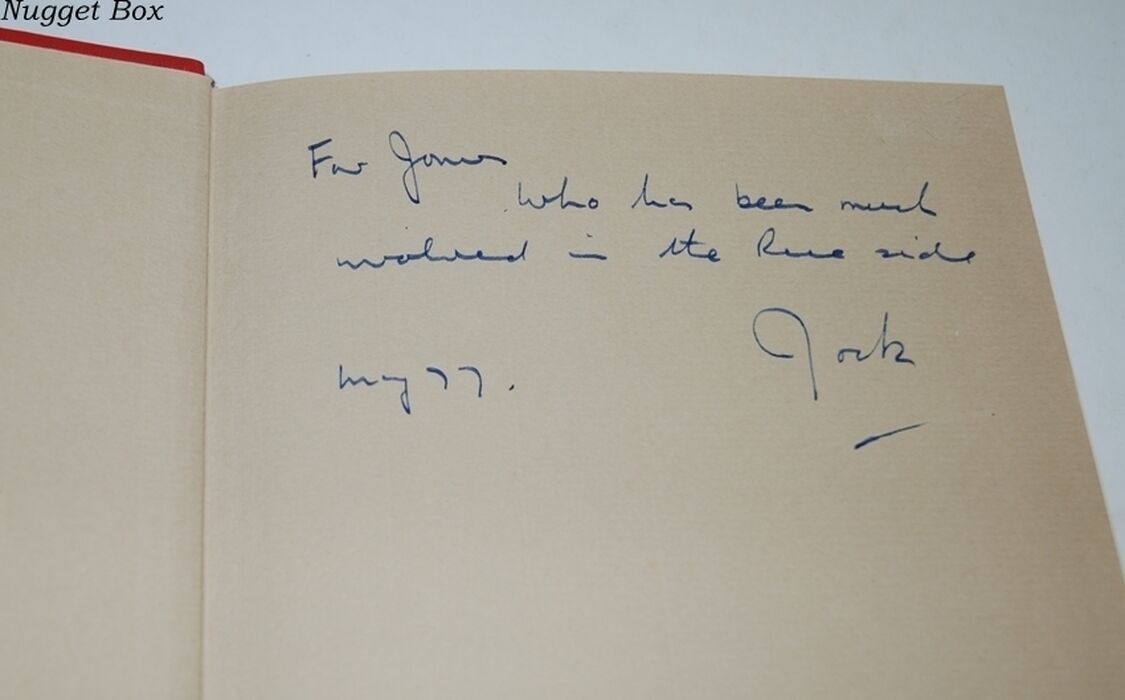 Nugget Box
For James
who has been much
involved in the side
Jock
May 77.